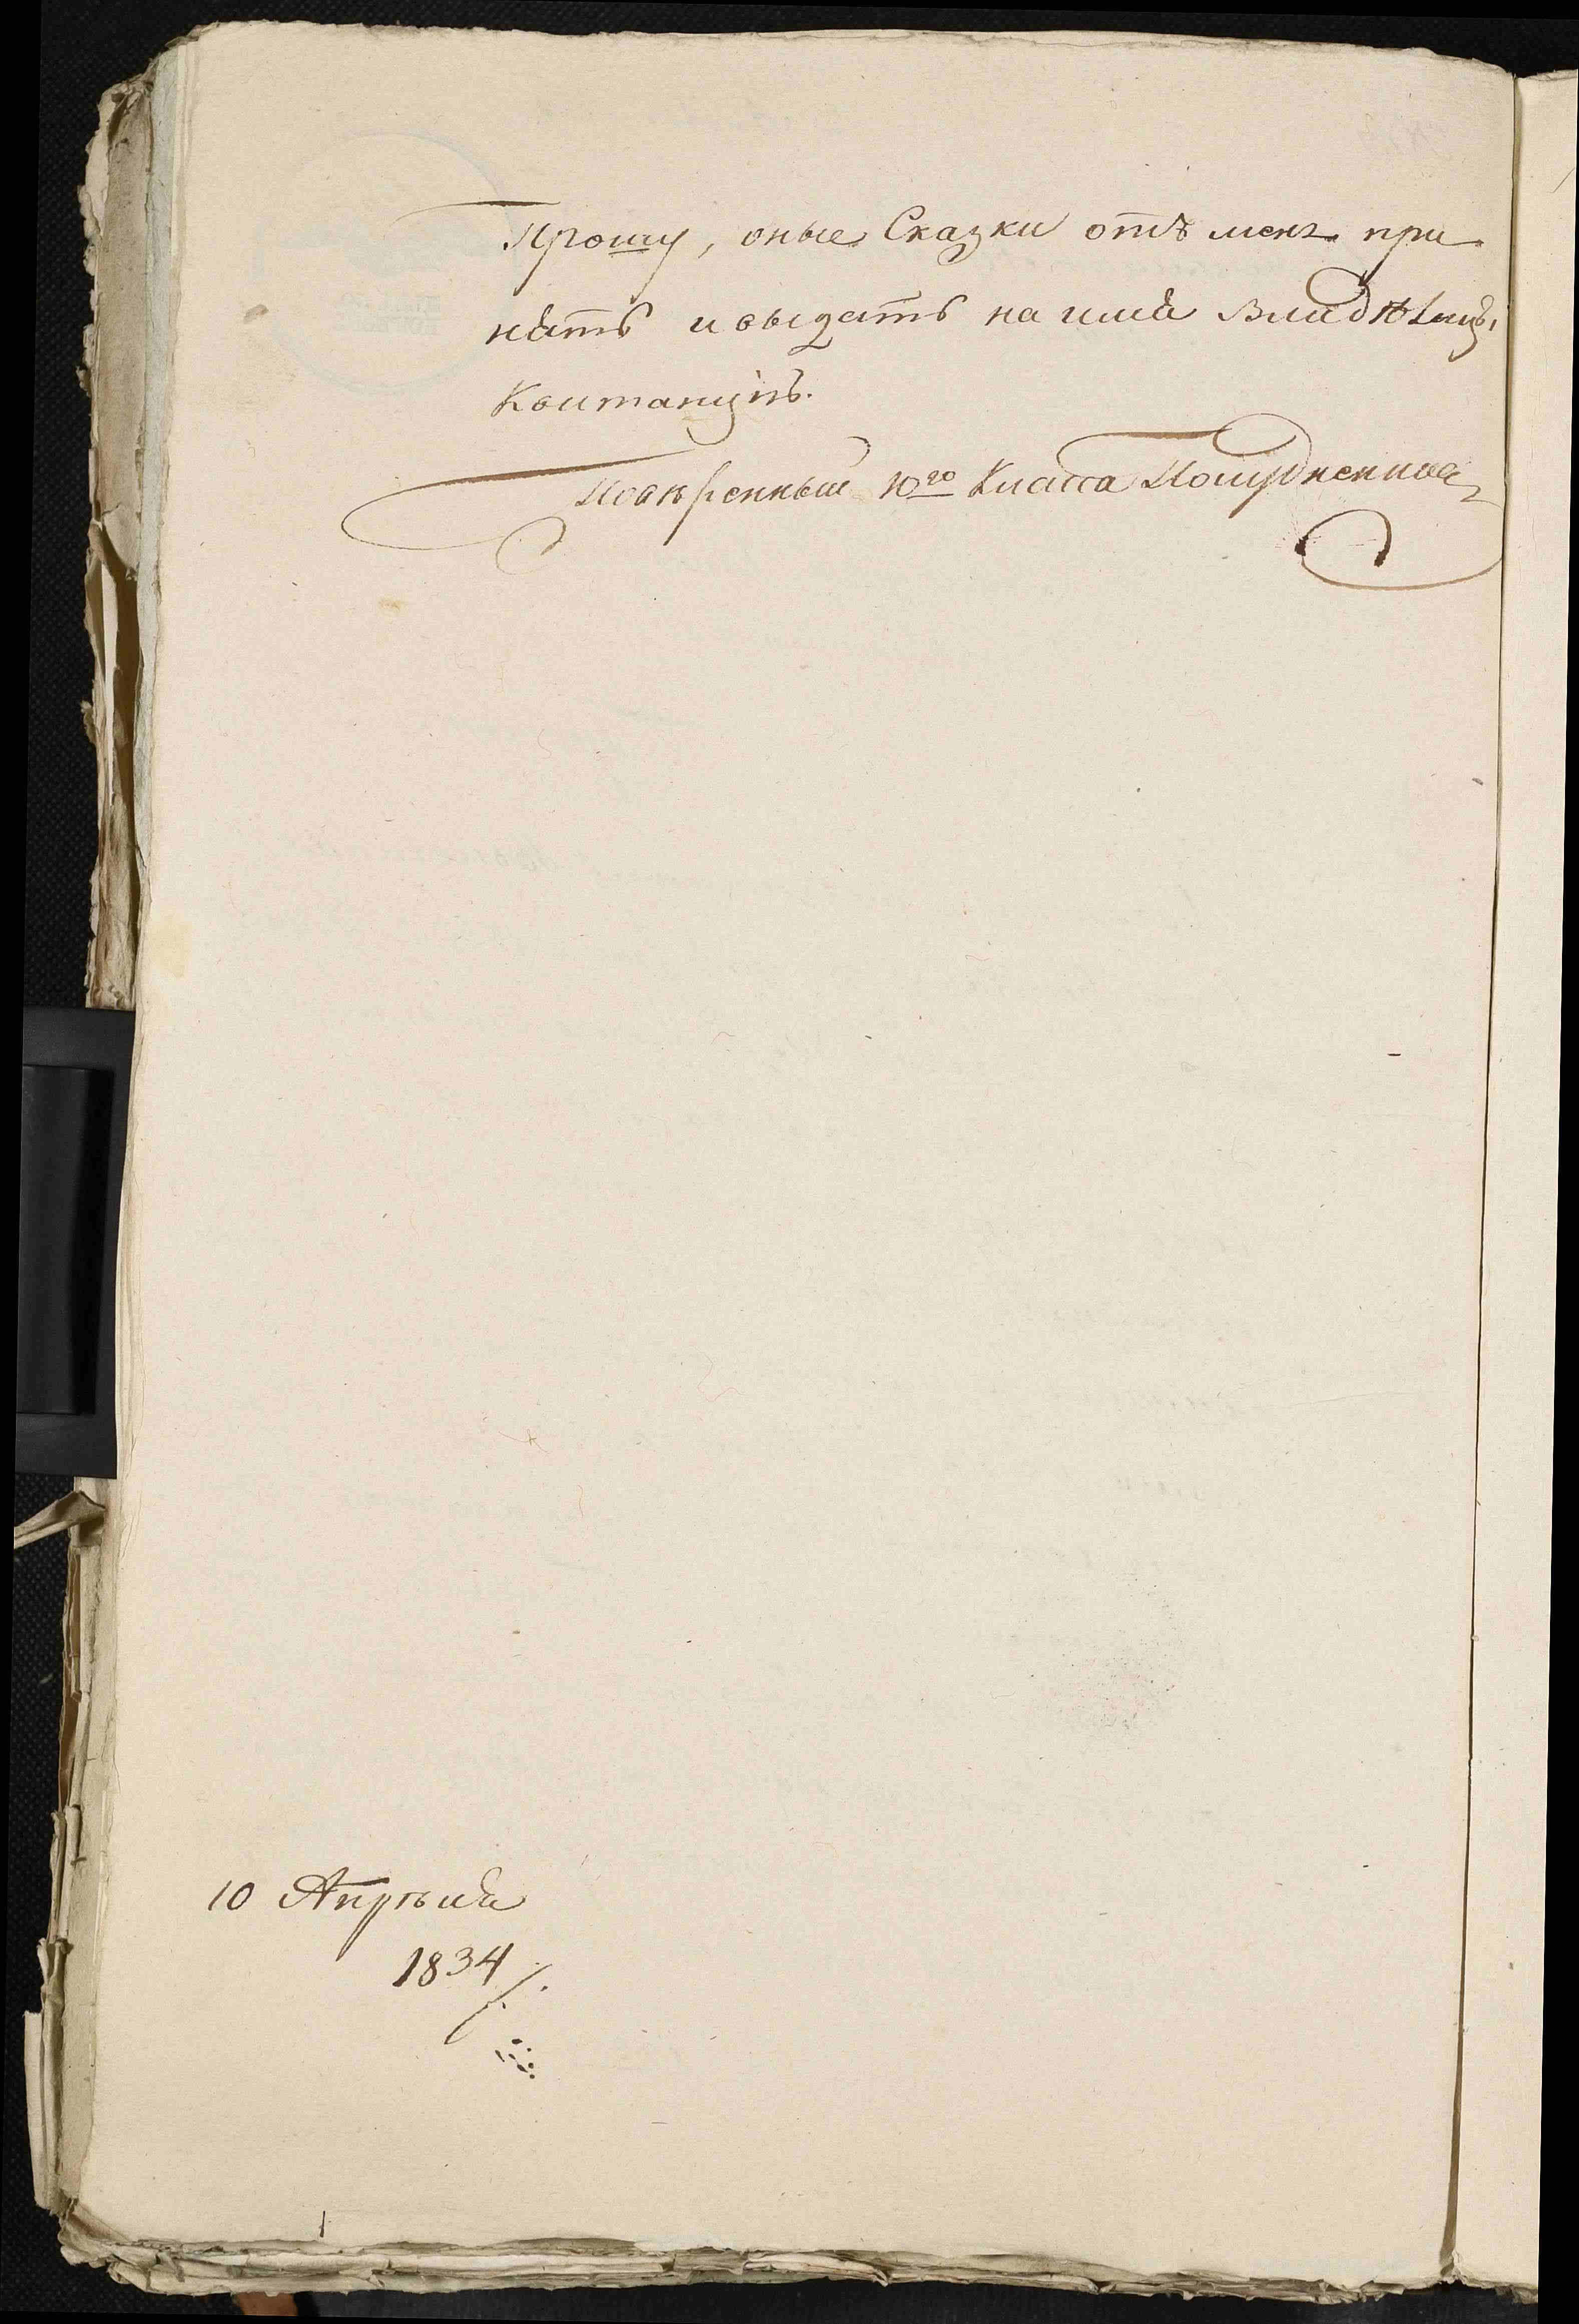 Прошу, оные Сказки отъ меня при
нять и выдать на имя Владѣлицы
Квитанцiю.
Повѣренный 10го Класса
10 Апрѣля
1834